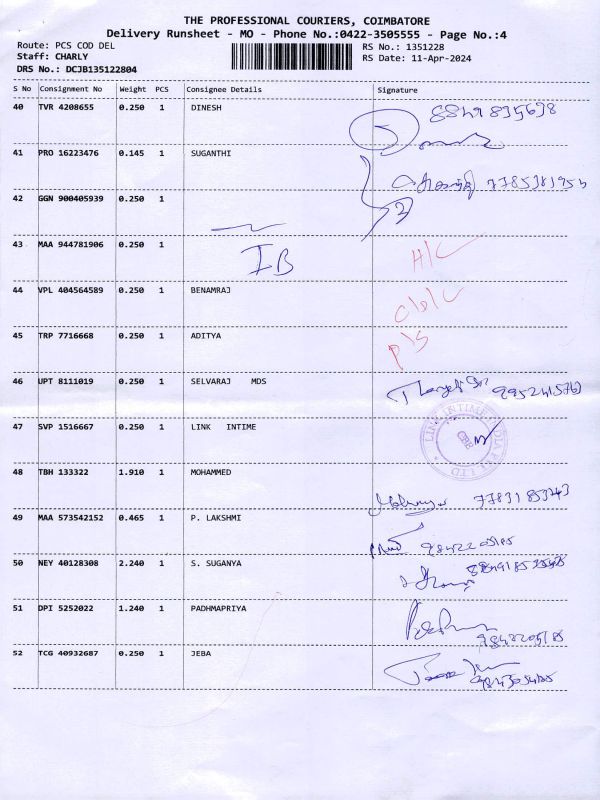 THE PROFESSIONAL COURIERS, COIMBATORE
Delivery Runsheet - MO - Phone No.:0422-3505555 - Page No.:4
Route: PCS COD DEL
RS No.: 1351228
Staff: CHARLY
RS Date: 11-Apr-2024
DRS No.: DCJB135122804
S No Consignment No Weight PCS Consignee Details Signature
40 TVR 4208655 0.250 1 DINESH
41 PRO 16223476 0.145 1 SUGANTHI
42 GGN 900405939 0.250 1
43 MAA 944781906 0.250 1 IB H/C
44 VPL 404564589 0.250 1 BENAMRAJ
45 TRP 7716668 0.250 1 ADITYA P/S
46 UPT 8111019 0.250 1 SELVARAJ MDS
47 SVP 1516667 0.250 1 LINK INTIME
48 TBH 133322 1.910 1 MOHAMMED
49 MAA 573542152 0.465 1 P. LAKSHMI
50 NEY 40128308 2.240 1 S. SUGANYA
51 DPI 5252022 1.240 1 PADHMAPRIYA
52 TCG 40932687 0.250 1 JEBA